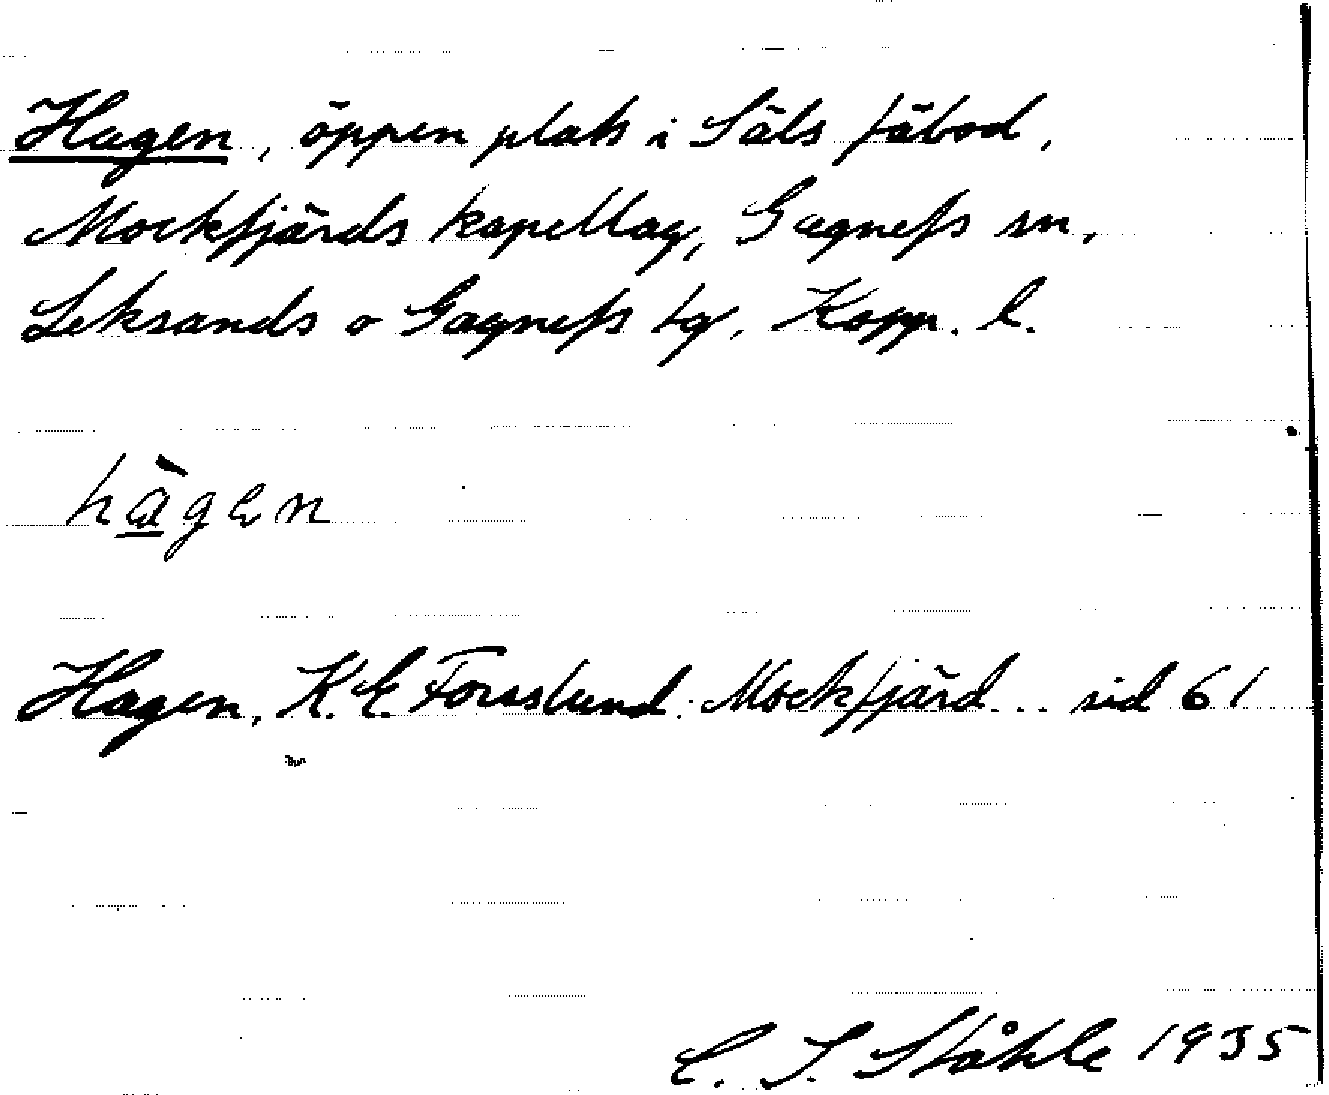 Hagen, öppen plats i Säls fäbod,
Mockfjärds kapellag, Gagnefs sn,
Leksands o Gagnefs tg, Kopp. l.
hàgen
Hagen, K. E. Forsslund: Mockfjärd... sid 61
C. I. Ståhle 1935